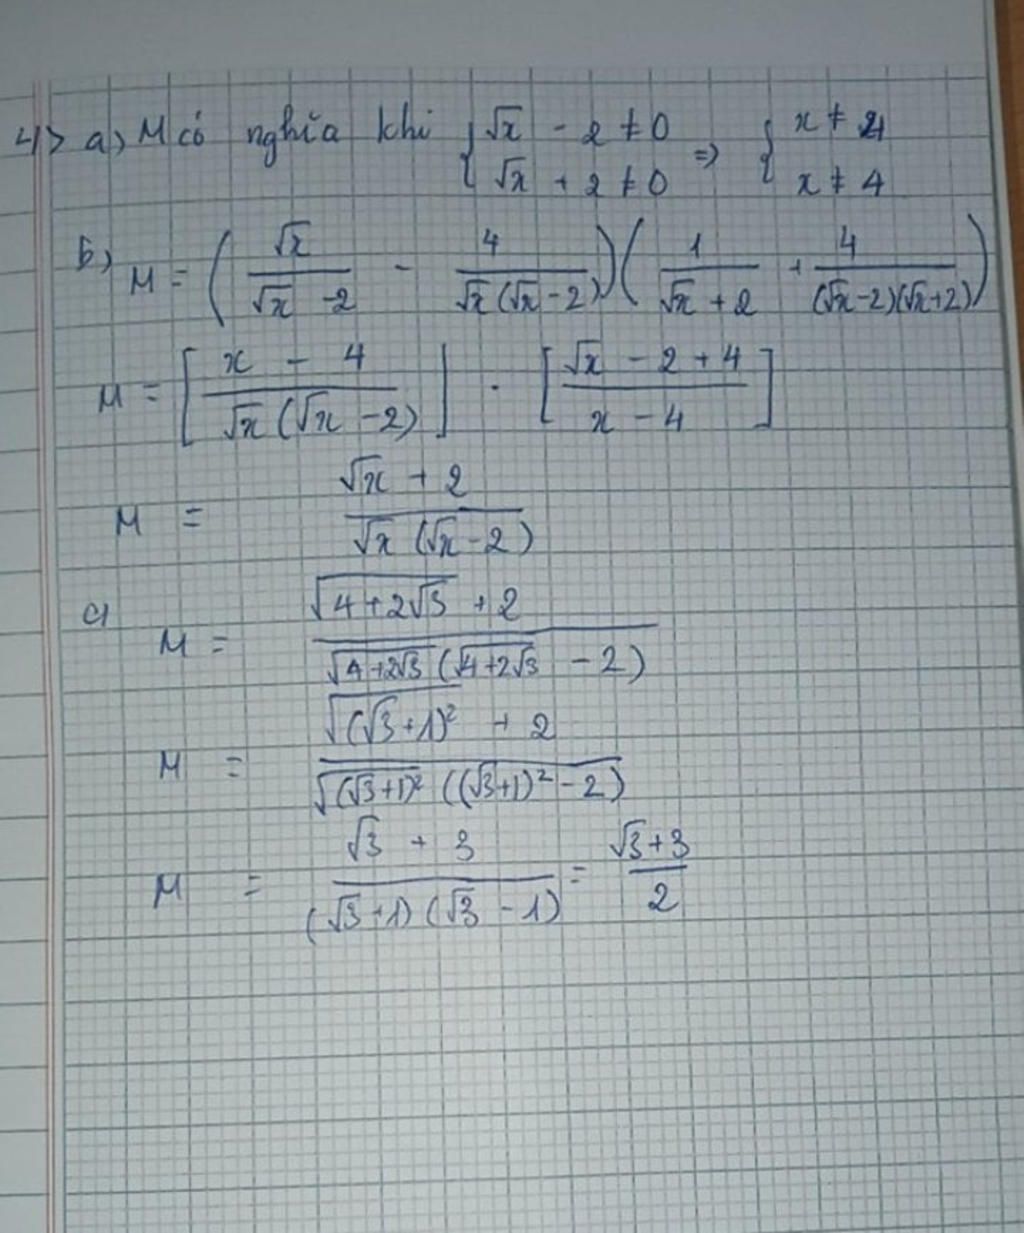 4> a) M có nghĩa khi { √x - 2 ≠ 0 => { x ≠ 4
√x + 2 ≠ 0 x ≠ 4
b) M = ( √x / (√x - 2) - 4 / (√x (√x - 2)) ) ( 1 / (√x + 2) + 4 / ((√x - 2)(√x + 2)) )
M = [ (x - 4) / (√x (√x - 2)) ] . [ (√x - 2 + 4) / (x - 4) ]
M = (√x + 2) / (√x (√x - 2))
c) M = (√(4 + 2√3) + 2) / (√(4 + 2√3) (√(4 + 2√3) - 2))
M = (√((√3 + 1)²) + 2) / (√((√3 + 1)²) ((√3 + 1)² - 2))
M = (√3 + 3) / ((√3 + 1)(√3 - 1)) = (√3 + 3) / 2